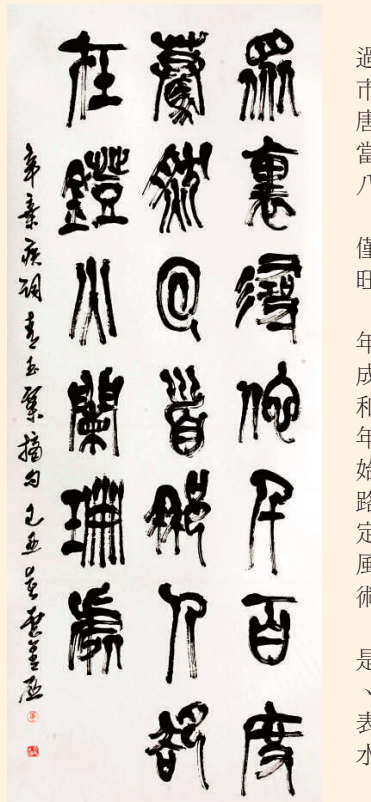 眾裏尋他千百度
驀然回首那人卻
在燈火闌珊處
辛棄疾詞青玉案摘句 己丑
過
市
唐
當
八
僅
旺
年
成
和
年
始
路
定
風
術
是
、
表
水